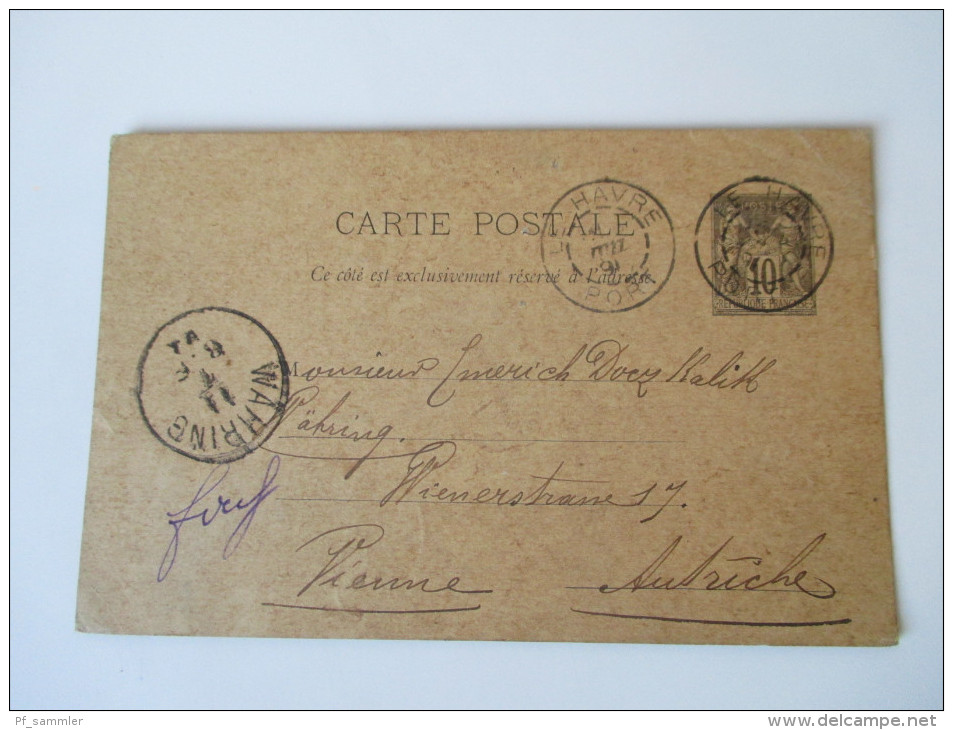 CARTE POSTALE
Ce côté est exclusivement réservé à l'adresse.
LE HAVRE
PORT
LE HAVRE
PORT
10
REPUBLIQUE FRANCAISE
WAHRING
Monsieur Emerich Docz Kalik
Währing.
Wienerstrasse 17.
Vienne Autriche
Pf_sammler
www.delcampe.net